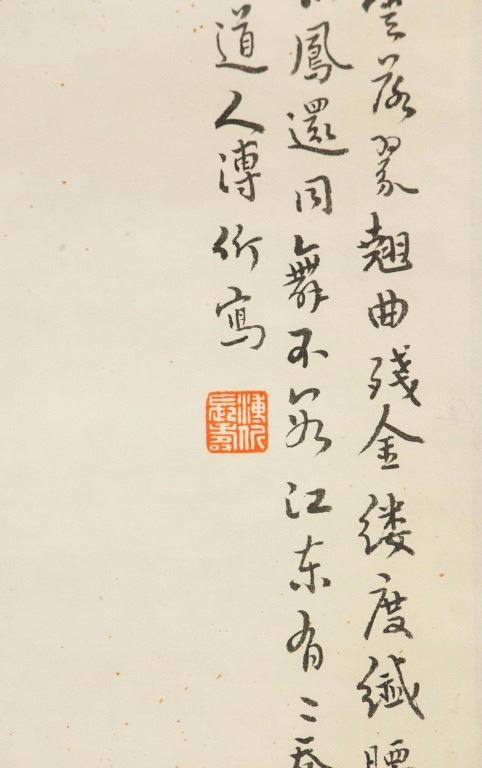 落翠翹曲殘金縷度纖腰
鳳還同舞不若江東有二喬
道人溥伒寫
溥伒長壽